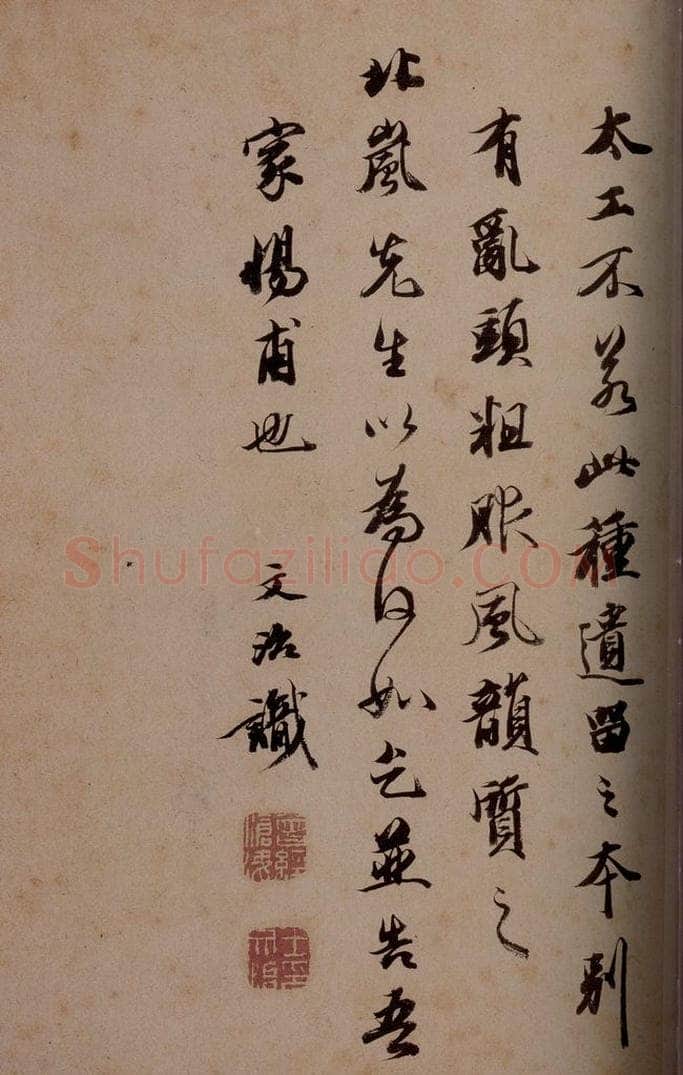 太工不若此種遺留之本別
有亂頭粗服風韻質之
北嵐先生以為何如乞並告吾
家惕甫也
文治識
Shufaziliao.com